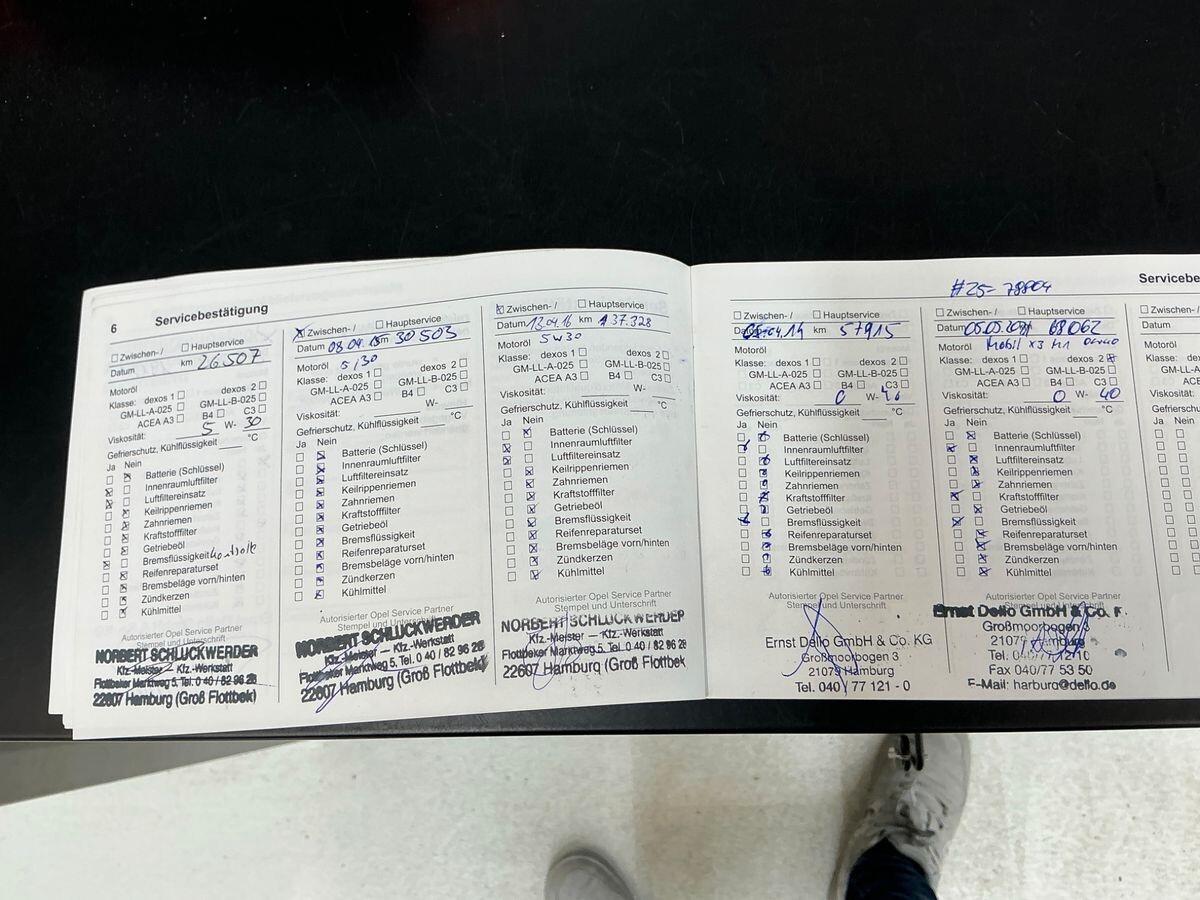 6 Servicebestätigung
☐ Zwischen- / ☐ Hauptservice
Datum km 26.507
Motoröl
Klasse: dexos 1 ☐ dexos 2 ☐
GM-LL-A-025 ☐ GM-LL-B-025 ☐
ACEA A3 ☐ B4 ☐ C3 ☐
Viskosität: 5 W- 30
Gefrierschutz, Kühlflüssigkeit ____ °C
Ja Nein
Batterie (Schlüssel)
Innenraumluftfilter
Luftfiltereinsatz
Keilrippenriemen
Zahnriemen
Kraftstofffilter
Getriebeöl
Bremsflüssigkeit Kontrolle
Reifenreparaturset
Bremsbeläge vorn/hinten
Zündkerzen
Kühlmittel
Autorisierter Opel Service Partner
Stempel und Unterschrift
NORBERT SCHLUCKWERDER
Kfz.-Meister — Kfz.-Werkstatt
Flottbeker Marktweg 5, Tel. 0 40 / 82 96 28
22607 Hamburg (Groß Flottbek)
☒ Zwischen- / ☐ Hauptservice
Datum 08.04. km 30 503
Motoröl 5/30
Klasse: dexos 1 ☐ dexos 2 ☐
GM-LL-A-025 ☐ GM-LL-B-025 ☐
ACEA A3 ☐ B4 ☐ C3 ☐
Viskosität: W-
Gefrierschutz, Kühlflüssigkeit ____ °C
Ja Nein
Batterie (Schlüssel)
Innenraumluftfilter
Luftfiltereinsatz
Keilrippenriemen
Zahnriemen
Kraftstofffilter
Getriebeöl
Bremsflüssigkeit
Reifenreparaturset
Bremsbeläge vorn/hinten
Zündkerzen
Kühlmittel
Autorisierter Opel Service Partner
Stempel und Unterschrift
NORBERT SCHLUCKWERDER
Kfz.-Meister — Kfz.-Werkstatt
Flottbeker Marktweg 5, Tel. 0 40 / 82 96 28
22607 Hamburg (Groß Flottbek)
☒ Zwischen- / ☐ Hauptservice
Datum 13.04.16 km 37.328
Motoröl 5W30
Klasse: dexos 1 ☐ dexos 2 ☐
GM-LL-A-025 ☐ GM-LL-B-025 ☐
ACEA A3 ☐ B4 ☐ C3 ☐
Viskosität: W-
Gefrierschutz, Kühlflüssigkeit ____ °C
Ja Nein
Batterie (Schlüssel)
Innenraumluftfilter
Luftfiltereinsatz
Keilrippenriemen
Zahnriemen
Kraftstofffilter
Getriebeöl
Bremsflüssigkeit
Reifenreparaturset
Bremsbeläge vorn/hinten
Zündkerzen
Kühlmittel
Autorisierter Opel Service Partner
Stempel und Unterschrift
NORBERT SCHLUCKWERDER
Kfz.-Meister — Kfz.-Werkstatt
Flottbeker Marktweg 5, Tel. 0 40 / 82 96 28
22607 Hamburg (Groß Flottbek
Servicebe
☐ Zwischen- / ☐ Hauptservice
km 57915
Motoröl
Klasse: dexos 1 ☐ dexos 2 ☐
GM-LL-A-025 ☐ GM-LL-B-025 ☐
ACEA A3 ☐ B4 ☐ C3 ☐
Viskosität: 0 W- 40
Gefrierschutz, Kühlflüssigkeit ____ °C
Ja Nein
Batterie (Schlüssel)
Innenraumluftfilter
Luftfiltereinsatz
Keilrippenriemen
Zahnriemen
Kraftstofffilter
Getriebeöl
Bremsflüssigkeit
Reifenreparaturset
Bremsbeläge vorn/hinten
Zündkerzen
Kühlmittel
Autorisierter Opel Service Partner
Stempel und Unterschrift
Ernst Dello GmbH & Co. KG
Großmoorbogen 3
21079 Hamburg
Tel. 040 / 77 121 - 0
☐ Zwischen- / ☐ Hauptservice
Datum
Motoröl Mobil
Klasse: dexos 1 ☐ dexos 2 ☒
GM-LL-A-025 ☐ GM-LL-B-025 ☐
ACEA A3 ☐ B4 ☐ C3 ☐
Viskosität: 0 W- 40
Gefrierschutz, Kühlflüssigkeit ____ °C
Ja Nein
Batterie (Schlüssel)
Innenraumluftfilter
Luftfiltereinsatz
Keilrippenriemen
Zahnriemen
Kraftstofffilter
Getriebeöl
Bremsflüssigkeit
Reifenreparaturset
Bremsbeläge vorn/hinten
Zündkerzen
Kühlmittel
Autorisierter Opel Service Partner
Stempel und Unterschrift
Ernst Dello GmbH & Co.
Großmoorbogen 3
21079 Hamburg
Fax 040/77 53 50
E-Mail: harburg@dello.de
☐ Zwisch
Datum
Motoröl
Klasse:
Viskosität:
Gefriersch
Ja Nein